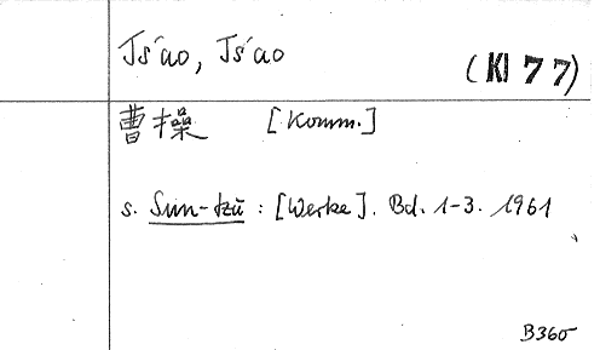 Ts'ao, Ts'ao
(Kl 77)
曹操 [Komm.]
s. Sun-tzŭ : [Werke]. Bd. 1-3. 1961
B360